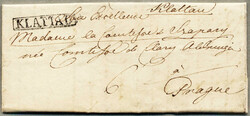 KLATTAU
Son Excellence Klattau
Madame la Comtesse de Szapary
née Comtesse de Clary Aldringen
à
6
Prague